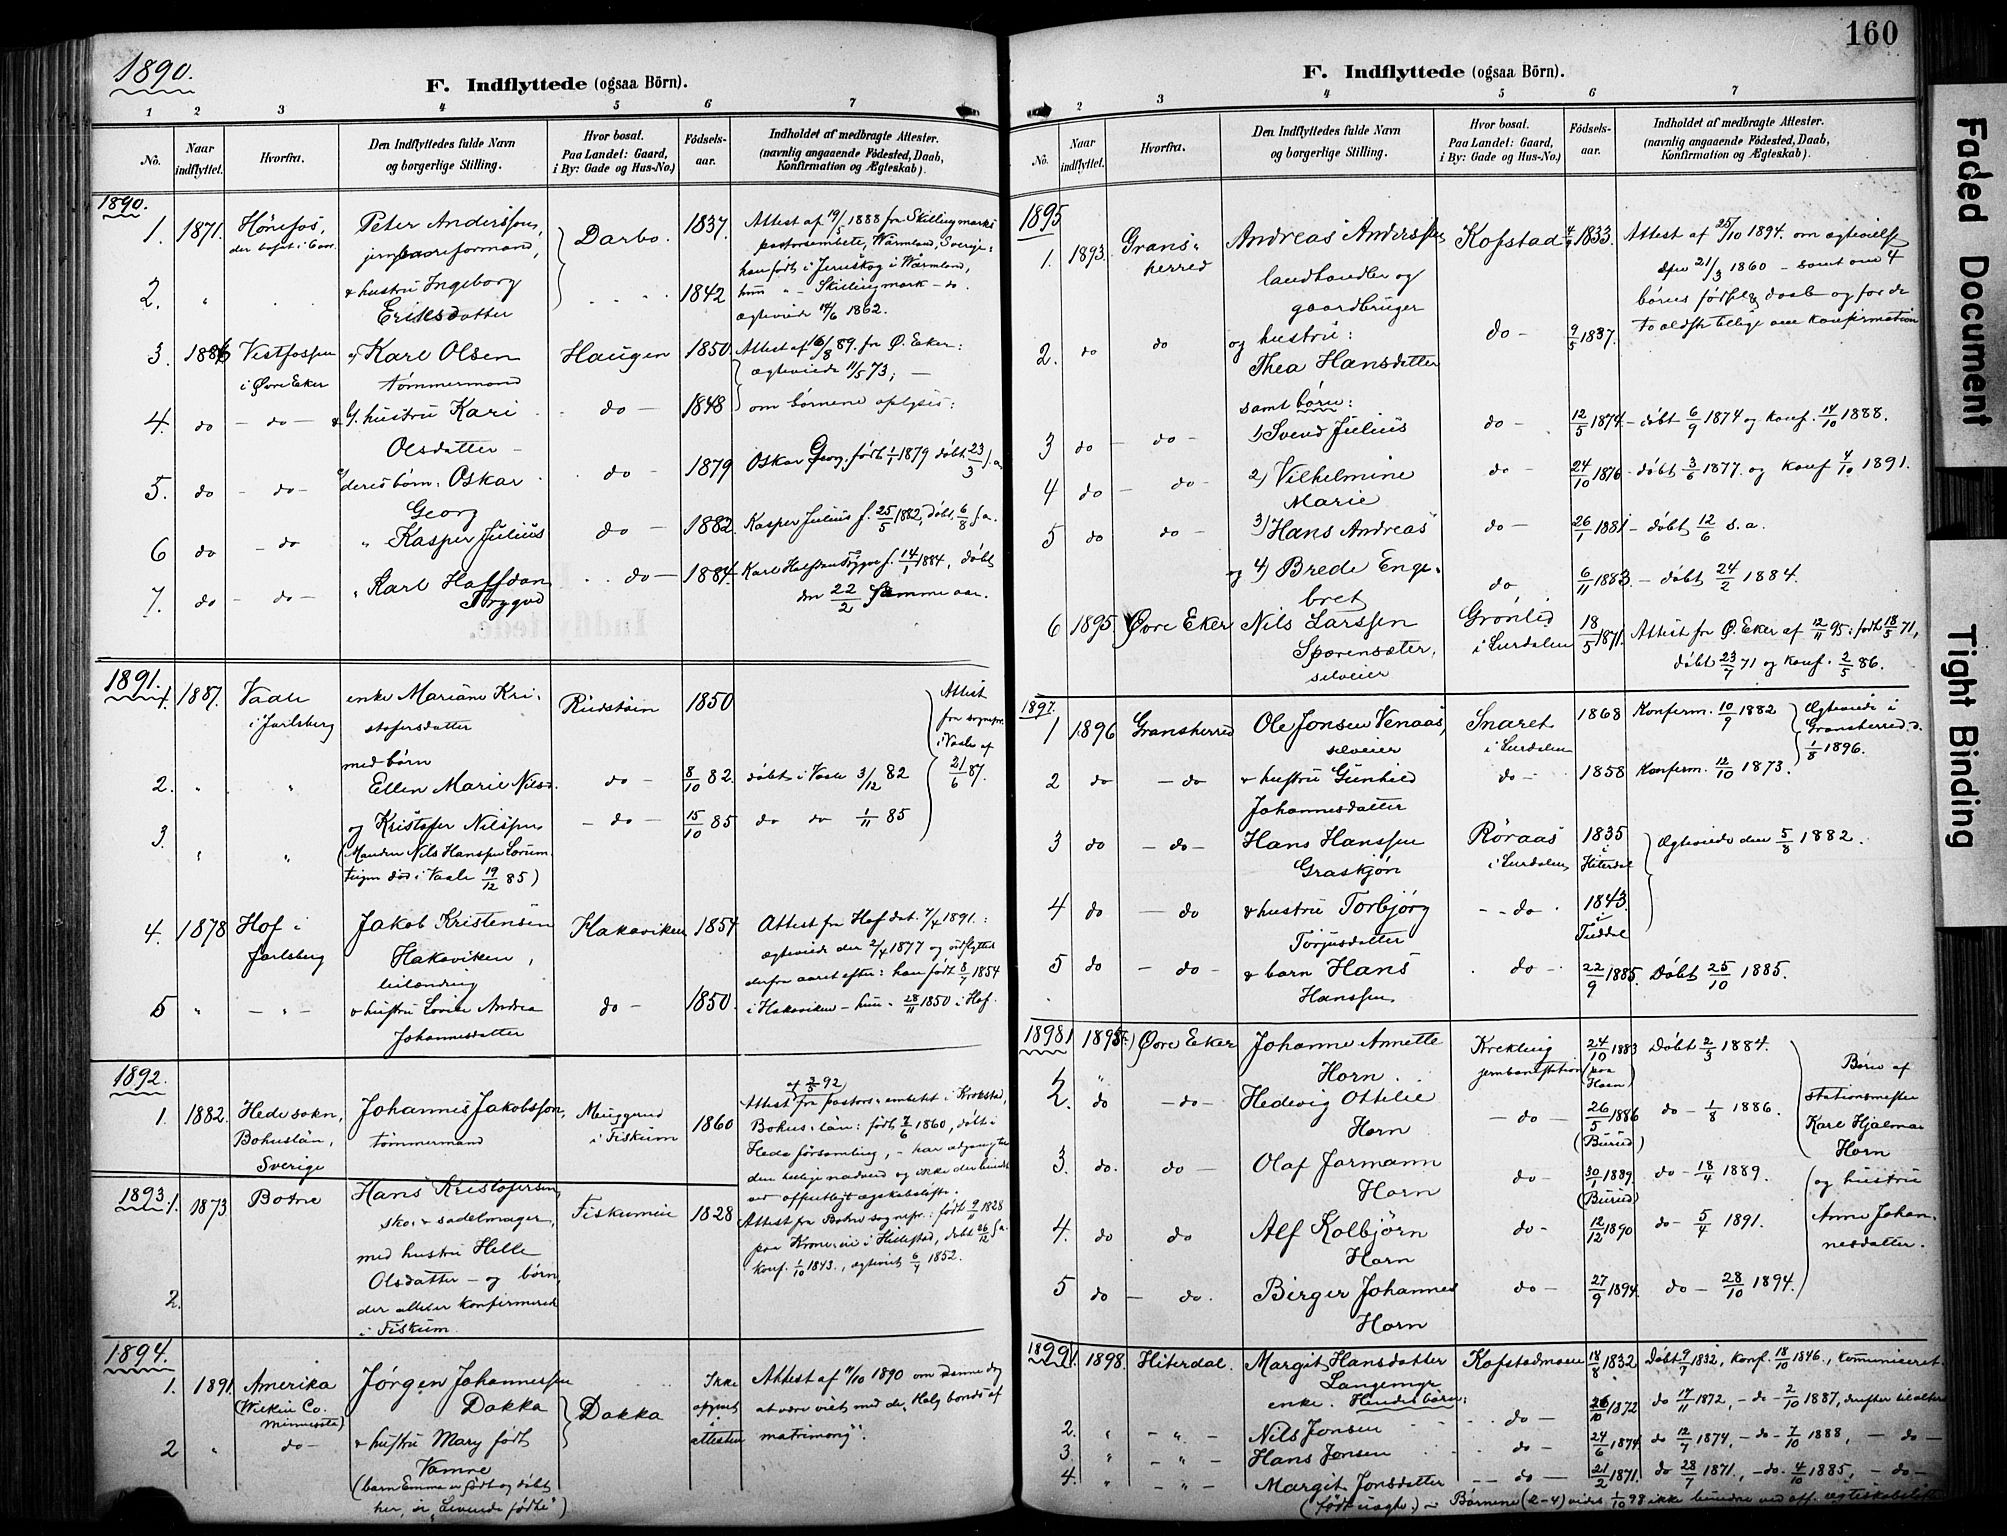 1890.
F. Indflyttede (ogsaa Börn).
1 2 3 4 5 6 7
No. Naar indflyttet. Hvorfra. Den Indflyttedes fulde Navn og borgerlige Stilling. Hvor bosat. Paa Landet: Gaard, i By: Gade og Hus-No.) Fødsels-aar. Indholdet af medbragte Attester. (navnlig angaaende Födested, Daab, Konfirmation og Ægteskab).
1890.
1. 1871. Hønefos, Peter Anderssøn, Darbo. 1837. Attest af 19/5 1888 fra Skillingmarks
der bosat i
pastorsembete, Wärmland, Sverige:
han født i Jernskog i Wärmland,
2. " . & hustru Ingeborg 1842 hun " - Skillingmark - do.
Eriksdatter ægteviede 1862.
3. 1886 Vestfossen Karl Olsen Haugen 1850. Attest af 16/8 89. fra Ø. Eker:
i Øvre Eker tømmermand ægteviede 11/5 73; —
4. do - do - & hustru Kari do - 1848 om børnene oplyses:
Olsdatter -
5. do - do - deres børn: Oskar do - 1879 Oskar Georg født 1/1 1879 døbt 23/3 s. a.
Georg
6 do - do " Kasper Julius do - 1882. Kasper Julius f. 25/5 1882, døbt 6/8 s. a.
7. do - do - " Karl Halfdan do - 1884 Karl Halfdan Trygve f. 14/1 1884, døbt
Trygve den 22/2 samme aar.
1891.
1. 1887. Vaale enke Mariane Kri- Rudstøin 1850 Attest
i Jarlsberg stofersdatter fra sognepr.
med børn i Vaale af
2. " " Ellen Marie Nilsd. do - 8/10 82. døbt i Vaale 3/12 82 21/6 87.
3. " " og Kristofer Nilssen - do - 15/10 85 do do 1/11 85
(Manden Nils Hanssen
død i Vaale 19/12 85)
4. 1878 Hof i Jakob Kristensen Hakaviken 1854 Attest fra Hof dat. 7/4 1891.:
Jarlsberg Hakaviken, ægteviede den 2/4 1877 og indflyttet
leilænding derfra aaret efter: han født 8/7 1854
5 " - " - & hustru Lovise Andrea do - 1850. i Hakaviken - hun - 28/11 1850 i Hof.
Johannesdatter
1892.
af 2/5 92)
1. 1882. Hede sokn, Johannes Jakobsson, Muggerud 1860 Attest fra pastors-embetet i Krokstad,
Bohuslän, tømmermand i Fiskum Bohus-län: født 7/6 1860, døbt i
Sverige Hede forsamling, - har adgang til
den hellige nadverd og ikke
ved offentligt
1893. 1. 1873 Botne Hans Kristofersen Fiskumeie 1828 Attest fra Botne sognepr.: født 9/11 1828
sko- & sadelmager, paa Krone-eie i Hillestad, døbt 26/12 s. a.
med hustru Helle konf. 1/10 1843., ægteviet 6/7 1852.
Olsdatter - og børn,
2. der alle er konfirmerede
i Fiskum.
1894.
1. 1891. Amerika Jørgen Johannessen Dokka Ikke Attest af 11/10 1890 om denne dag
(Wilkin Co. Dokka opgivet at være viet med de "Holy bonds of
Minnesota) i attesten matrimony".
2 " do - & hustru Mary født
Vamne
(barn Emma er født og døbt
her, " Levende fødte")
160
F. Indflyttede (ogsaa Börn).
2 3 4 5 6 7
No. Naar indflyttet. Hvorfra. Den Indflyttedes fulde Navn og borgerlige Stilling. Hvor bosat. Paa Landet: Gaard, i By: Gade og Hus-No.) Födsels-aar. Indholdet af medbragte Attester. (navnlig angaaende Födested, Daab, Konfirmation og Ægteskab).
1895
1. 1893. Grans- Andreas Anderssen Kofstad 1833. Attest af 25/10 1894. om ægtevielse
herred landhandler og den 21/3 1860 - samt om 4
gaardbruger børns fødsel & daab og for de
2. do do og hustru: do - 9/5 1837. to ældste tillige om konfirmation
Thea Hansdatter
samt børn:
3 do - do - 1) Svend Julius do - 12/5 1874 - døbt 6/9 1874 og konf. 14/10 1888.
4 do - do - 2) Vilhelmine do - 24/10 1876 - døbt 3/6 1877. og konf 4/10 1891.
Marie
5 do do - 3) Hans Andreas do - 26/1 1881 - døbt 12/6 s. a.
og 4) Brede Enge- do 6/11 1883. - døbt 24/2 1884.
bret
6 1895. Øvre Eker Nils Larssen Grønlid 18/5 1871. Attest fra Ø. Eker af 12/11 95: født 18/5 71,
Sporensæter, i Lurdalen døbt 23/7 71 og konf. 2/5 86.
selveier
1897.
1 1896 Gransherred Ole Jonsen Venaas, Snaret 1868 Konferm. 10/9 1882 Ægteviede i
selveier i Lurdalen Gransherred d.
2 do - do & hustru Gunhild do - 1858 Konferm. 12/10 1873. 1/8 1896.
Johannesdatter
3 do - do - Hans Hanssen Røraas 1835 Ægteviede den 5/8 1882.
Graskjøn i Lurdalen i Hiterdal
4 do - do & hustru Torbjørg - do - 1843.
Torjusdatter i Tuddal
5 do - do - & barn Hans do - 22/9 1885. Døbt 25/10 1885.
Hanssen
1898 1. 1895.) Øvre Eker Johanne Annette Krekling 24/10 1883 Døbt 2/3 1884.
Horn jernbanestation (paa Horn) Børn af
2. do - do - Hedevig Ottilie - do - 26/5 1886 do - 1/8 1886. stationsmester
Horn (Burud) Karl Hjalmar
3. do. do - Olaf Jarmann do - 30/1 1889 do - 18/4 1889. Horn
Horn (Burud) og hustru
4. do do Alf Kolbjørn do - 12/12 1890 do - 5/4 1891. Anne Johan-
Horn nesdatter.
5 do - do. Birger Johannes do - 27/9 1894. do - 28/10 1894.
Horn
1899 1. 1898. Hiterdal. Margit Hansdatter Kofstadmoen 18/8 1832 Døbt 9/7 1832, konf. 18/10 1846., kommuniceret.
Langemyr
enke. Hendes børn: 26/10 1872 do 17/11 1872, - do - 2/10 1887,
2. " - " - Nils Jonsen do -
3 " - " - Hans Jonsen - do - 24/6 1874 do 12/7 1874, - do - 7/10 1888, - do -
4. " - " - Margit Jonsdatter - do - 21/2 1871. do 28/7 1871, - do. 4/10 1885, - do -
(født uægte.) - Børnene (2-4) vides 1/10 98 ikke bundne ved off. ægteskabsløfte
Faded Document
Tight Binding